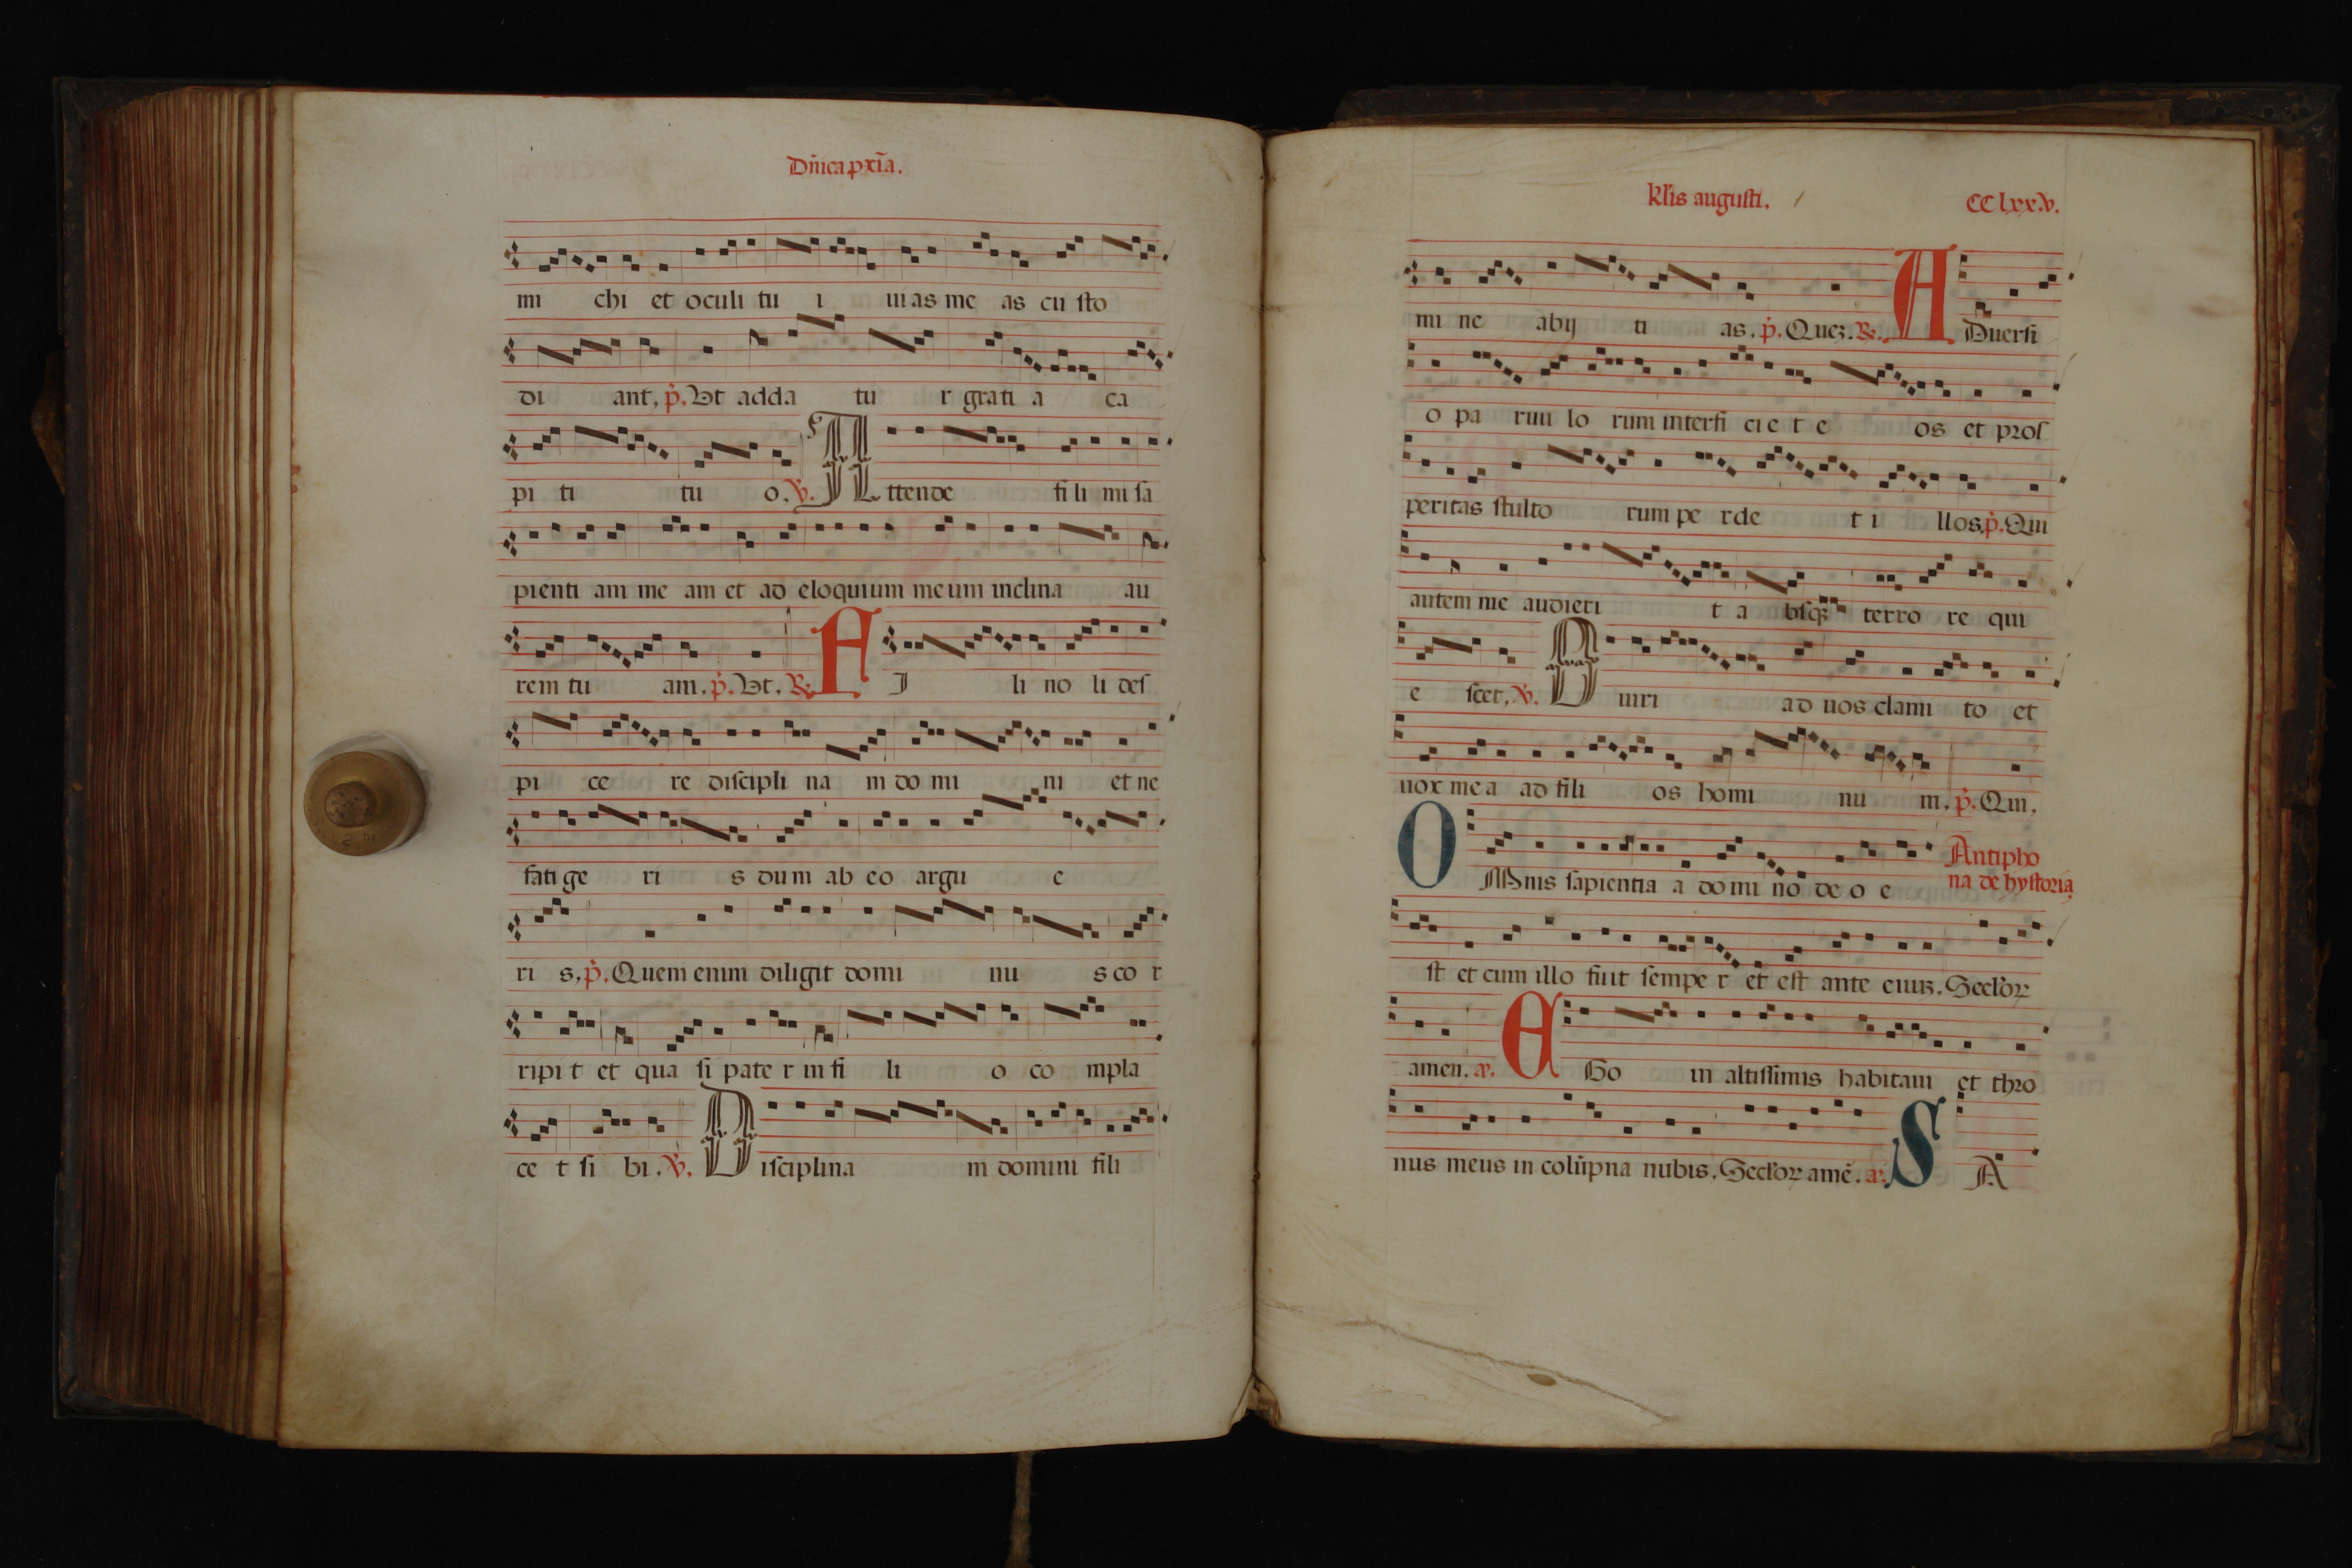 Dñica pxīa.
mi chi et oculi tu i uias me as cu sto
di ant, p̄. Ut adda tu r grati a ca
pi ti tu o, V. Attende fili mi sa
pienti am me am et ad eloquium meum inclina au
rem tu am, p̄. Ut, R. F I li no li des
pi ce re discipli na m do mi ni et ne
fati ge ri s dum ab eo argu e
ri s, p̄. Quem enim diligit domi nu s co r
ripi t et qua si pate r in fi li o co mpla
ce t si bi, V. Disciplina m domini fili
kl'is augusti. CClxx.v.
mi ne abij ti as, p̄. Quez. R. A Duersi
o pa ruu lo rum interfi ci e t e os et pros
peritas stulto rum pe rde t i llos, p̄. Qui
autem me audieri t a bsq3 terro re qui
e scet, V. O uiri ad uos clami to et
uox mea ad fili os homi nu m, p̄. Qui,
O Mnis sapientia a do mi no de o e Antipho
na de hystoria
st et cum illo fuit sempe r et est ante euu3. Secl'oꝝ
amen. æ. E Go in altissimis habitaui et thro
nus meus in colūpna nubis. Secl'oꝝ amē. æ. S A